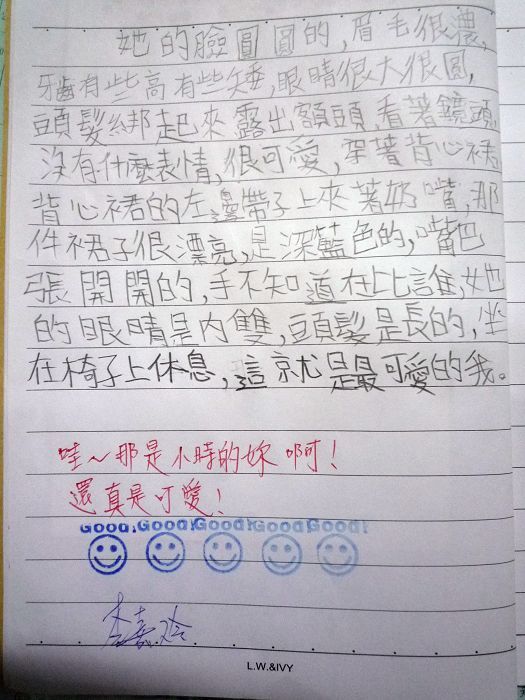 她的臉圓圓的,眉毛很濃,
牙齒有些高有些矮,眼睛很大很圓,
頭髮綁起來露出額頭,看著鏡頭
沒有什麼表情,很可愛,穿著背心裙
背心裙的左邊帶子上夾著奶嘴,那
件裙子很漂亮,是深藍色的,嘴巴
張開開的,手不知道在比誰,她
的眼睛是內雙,頭髮是長的,坐
在椅子上休息,這就是最可愛的我。
哇~那是小時的妳啊!
還真是可愛!
Good! Good! Good! Good! Good!
L.W.&IVY